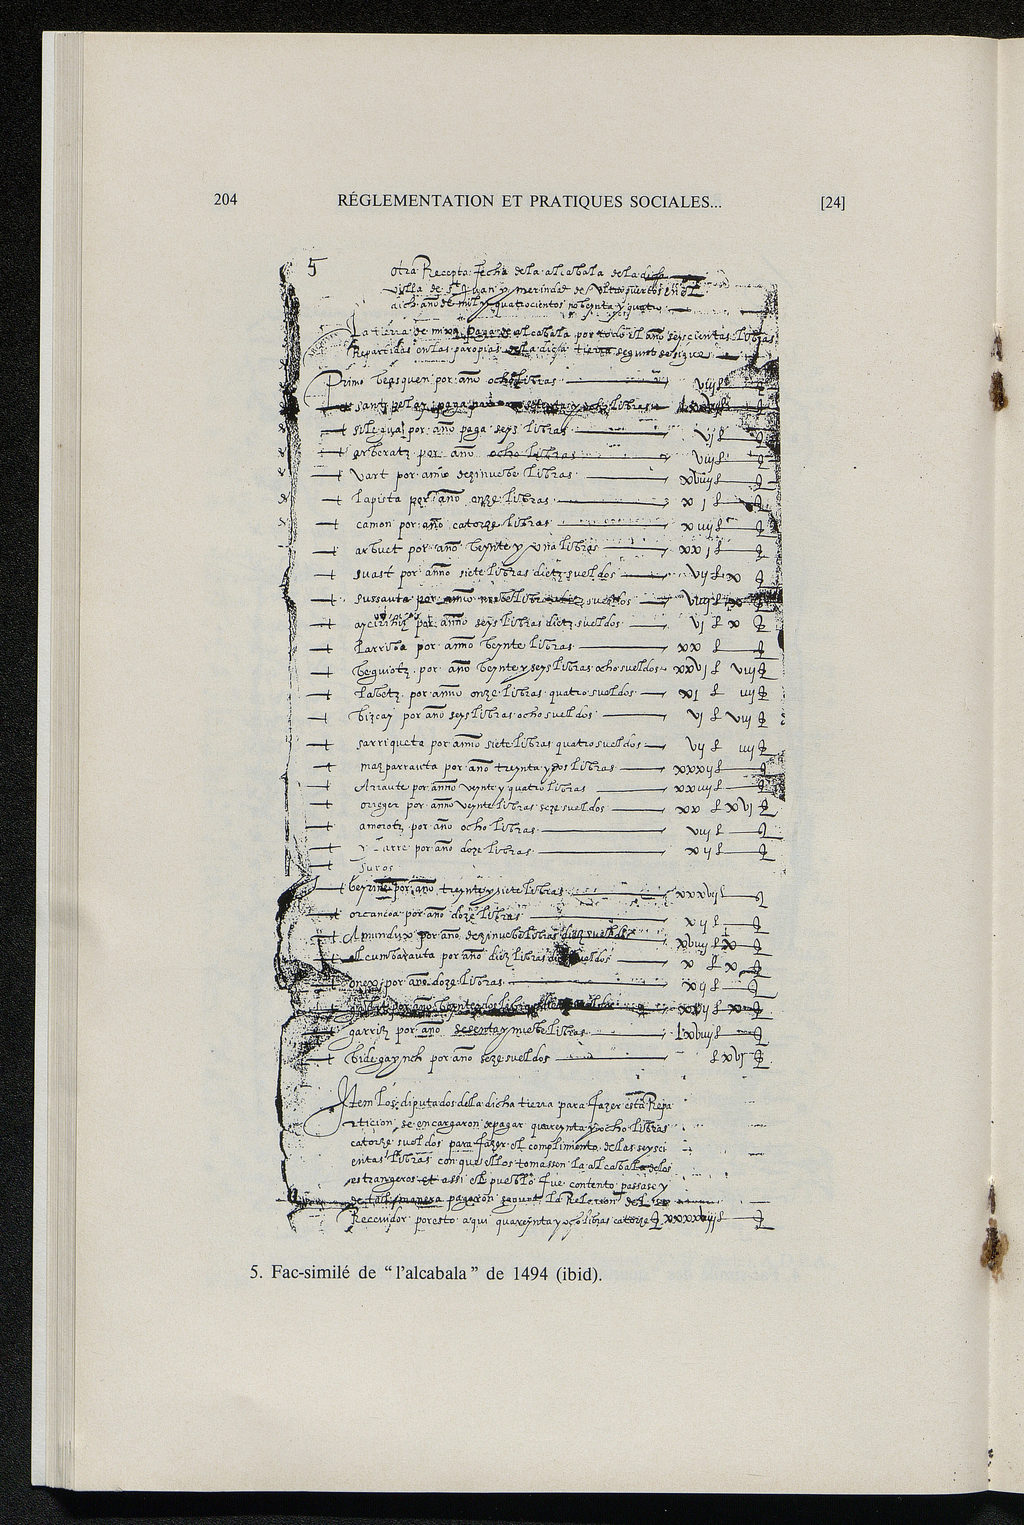 204 RÉGLEMENTATION ET PRATIQUES SOCIALES... [24]
5
otra Recepta fecha de la alcabala de la dicha
villa de Sant Juan y merindat de
aich año de mil y quatrocientos nobeynta y quatro
La tierra de mixa paga de alcabala por todo el año seyscientas libras
Repartidas en las paropias de la dicha tierra segunt se sigue
Primo beasquen por año ocho libras viij L
sant pelay paga setenta y ocho libras
silegua por año paga seys libras vj L
arberatz por año ocho libras viij L
vart por anno dezinuebe libras
lapista por año onze libras x j L
camon por año catorze libras
arbuet por año beynte y una libras xx j L
suast por anno siete libras dietz sueldos vij L x
sussauta por anno nuebe libras sueldos
por anno seys libras dietz sueldos vj L x
larriba por anno beynte libras xx L
beguiotz por año beynte y seys libras ocho sueldos xxvj L viij
labetz por anno onze libras quatro sueldos xj L iiij
bizcay por año seys libras ocho sueldos vj L viij
sarriqueta por anno siete libras quatro sueldos vij L iiij
mazparrauta por año treynta y dos libras xxxij L
Arraute por anno veynte y quatro libras xxiiij L
oreger por anno veynte libras seze sueldos xx L xvj
amorotz por año ocho libras viij L
por año doze libras xij L
Juros
beyrine por año treynta y siete libras xxxvij L
orcancoa por año doze libras xij L
por año dezinuebe libras diez sueldos
el cumbarauta por año diez libras sueldos x L x
onex por año doze libras xij L
por año beynte dos libras
garriz por año sesenta y nuebe libras
bidegaynch por año seze sueldos L xvj
Item los diputados de la dicha tierra para fazer esta Repa
rticion se encargaron de pagar quareynta y ocho libras
catorze sueldos para fazer el complimiento de las seysci
entas libras con que ellos tomassen la alcabala de los
estrangeros et assi el pueblo fue contento passase y
de tal manera pagaron segunt la Relacion del
Recevidor por esto aqui quareynta y ocho libras catorze
5. Fac-similé de “ l’alcabala ” de 1494 (ibid).